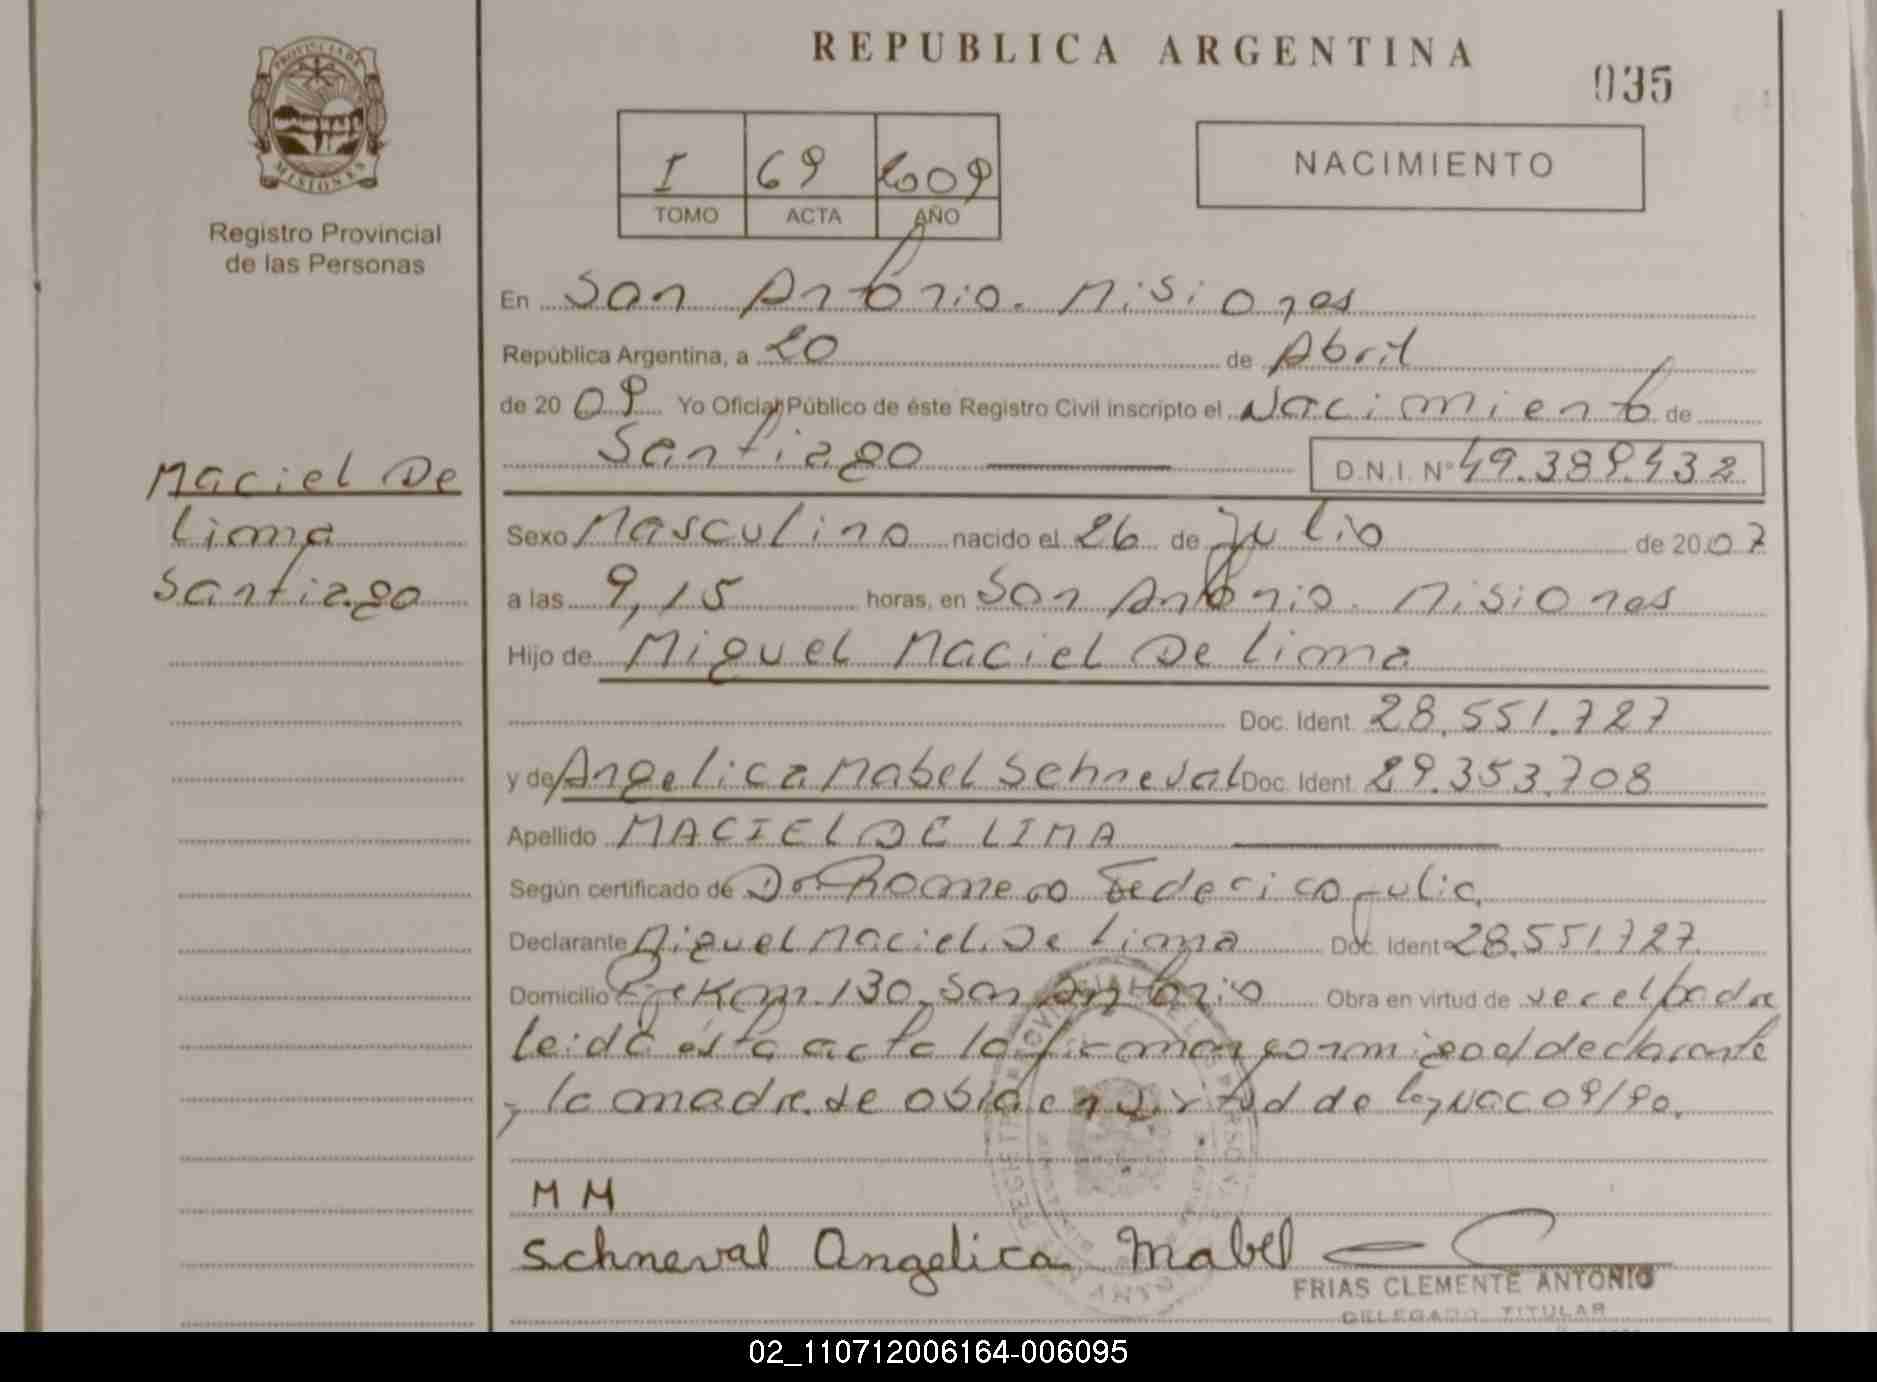 REPUBLICA ARGENTINA
035
PROVINCIA DE
MISIONES
Registro Provincial
de las Personas
I 69 2009
TOMO ACTA AÑO
NACIMIENTO
En San Antonio. Misiones
República Argentina, a 20 de Abril
de 20 09 Yo Oficial Público de éste Registro Civil inscripto el Nacimiento de
Santiago D.N.I. Nº 49.389.432
Maciel De
Lima
Santiago
Sexo Masculino nacido el 26 de Julio de 20 07
a las 9,15 horas, en San Antonio. Misiones
Hijo de Miguel Maciel De Lima
Doc. Ident. 28.551.727
y de Angelica Mabel Schneval Doc. Ident. 29.353.708
Apellido MACIEL DE LIMA
Según certificado de Dr. Romero Federico Julio.
Declarante Miguel Maciel De Lima Doc. Ident 28.551.727
Domicilio Km. 130, San Antonio Obra en virtud de ser el padre
leida esta acta la firman conmigo el declarante
y la madre. se obra en virtud de ley NAC 09/90.
M M
Schneval Angelica Mabel
FRIAS CLEMENTE ANTONIO
DELEGADO TITULAR
02_110712006164-006095